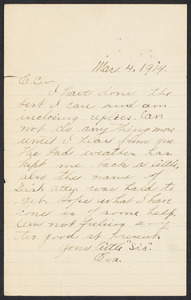 Mar. 4, 1914.
I have done the
best I can and am
enclosing replies. Can
not do any thing more
until I hear from you.
The bad weather has
kept me back a little,
also the name of
Dist. Atty. was hard to
get. Hope what I have
done is of some help.
Am not feeling any
too good at present.
Your little "Sis"
Eva.